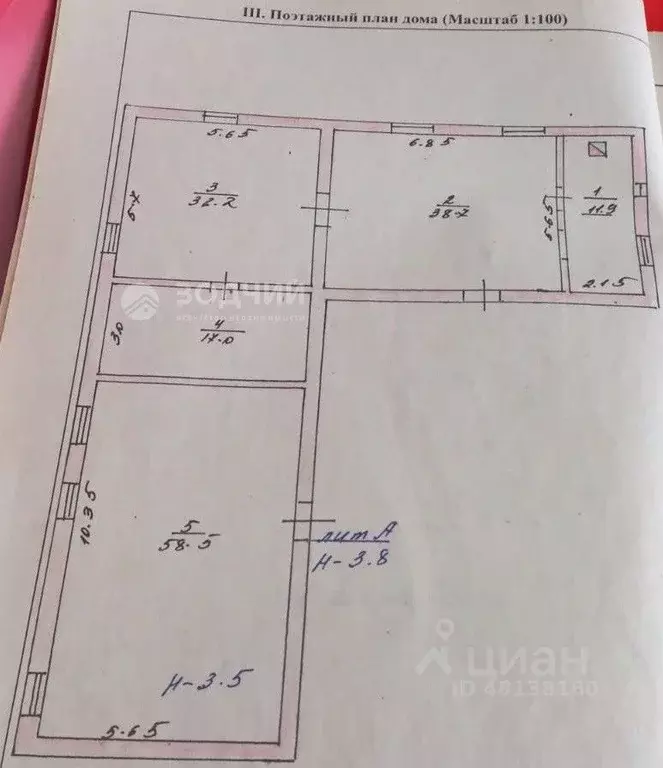 III. Поэтажный план дома (Масштаб 1:100)
5.65
6.85
3
32.2
5.7
2
38.7
5.65
1
11.9
2.15
ЗОДЧИЙ
3.0
4
17.0
10.35
5
58.5
лит А
Н-3.8
Н-3.5
5.65
циан